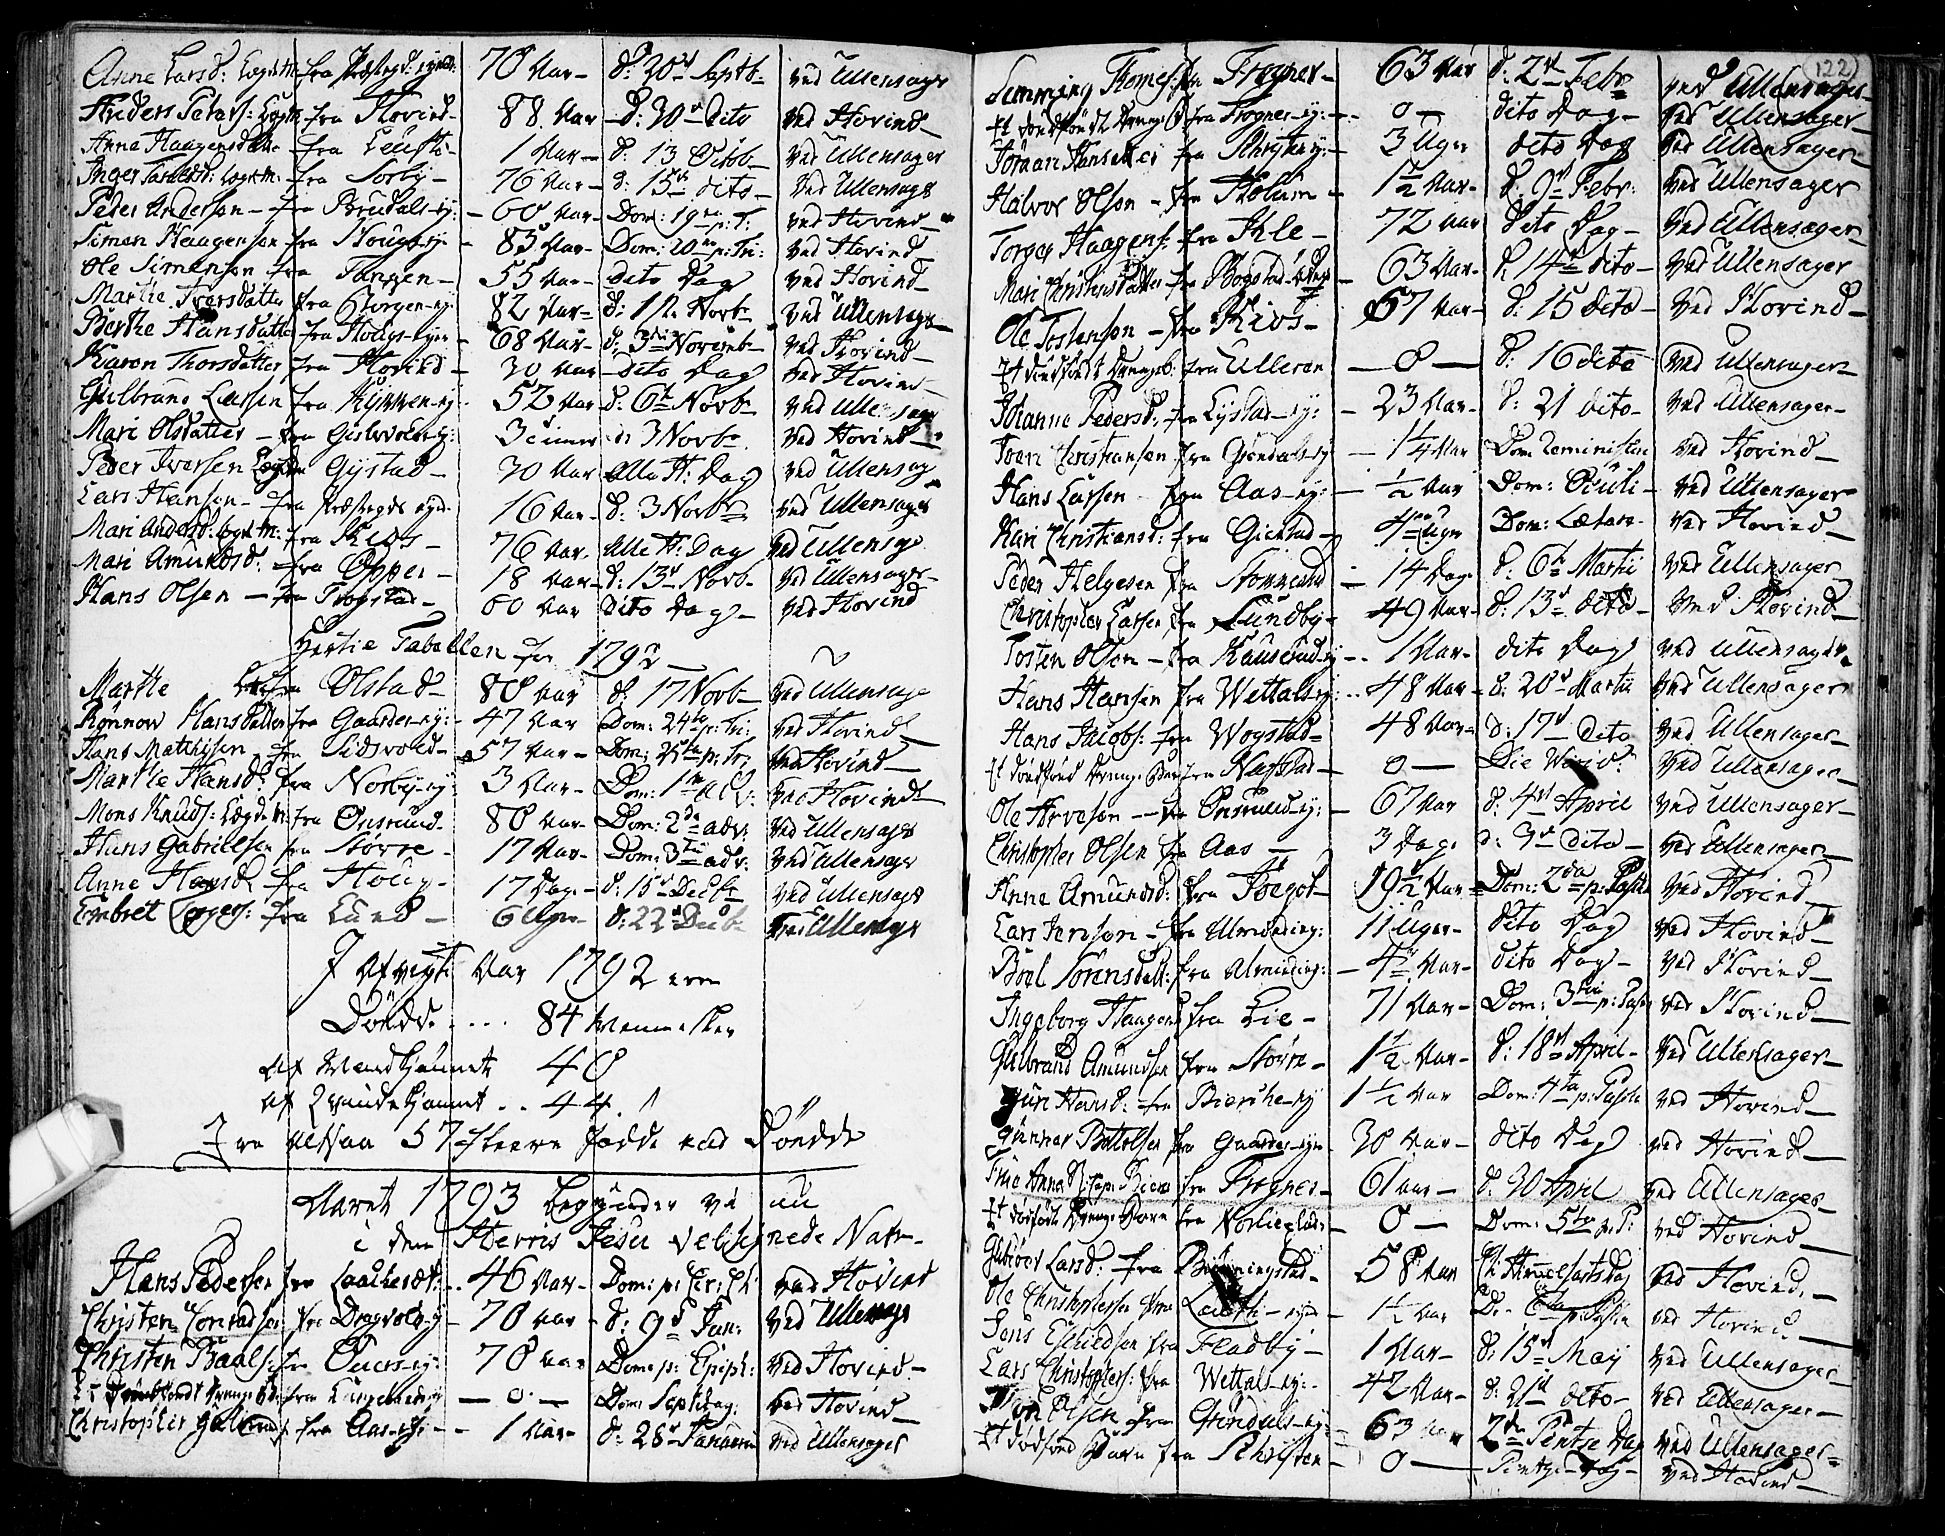 Anne Larsd: Lægdsm fra Præstegd: eyend: 70 Aar - d: 30t Septb - ved Ullensager
Anders Peders: Lægdsm fra Hovind - 88 Aar - d: 30t dito ved Hovind -
Anna Haagensdatter fra 1 Aar - d: 13 Octob - ved Ullensager
Inger Lægdsm: fra Sørby - 76 Aar - d: 15de dito - ved Ullensager
Peder Andersen - fra Brudals ey: - 60 Aar - Dom: 19de p: T. ved Hovind -
Simen Haagensen fra Houg ey - 83 Aar - Dom: 20de p: Tri: ved Hovind -
Ole Simensen fra Tangen - 55 Aar - dito Dag ved Hovind -
Marthe Iversdatter fra Borgen ey: 82 Aar - d: 1ste Novb - ved Ullensager
Berthe Hansdatter fra Hougs - eyen - 68 Aar - d: 3die Novemb - ved Hovind -
Karen Thorsdatter fra Hovind - 30 Aar - dito Dag ved Hovind -
Gulbrand Larsen fra Kykken - ey - 52 Aar d: 6t Novb - ved Ullensager
Mari Olsdatter - fra ey: 3 d: 3 Novb - ved Hovind -
Peder Iversen Lægdsm Gystad - 30 Aar Alle H: Dag ved Ullensag
Lars Hansen - fra Præstegds eyend. 16 Aar - d: 3 Novb - ved Ullensager
Mari Andersd: Lægdsm: fra Kios - 76 Aar - Alle H: Dag ved Ullensager
Mari Amundsd: - fra Opper - 18 Aar - d: 13d Novb - ved Ullensager -
Hans Olsen - fra Trogstad - 60 Aar dito Dag - ved Hovind
Hertie Tabellen for 1792 -
Marthe fra Olstad - 80 Aar d: 17 Novb - ved Ullensager
Rønnow Hansdatter fra Gaarder - ey: 47 Aar Dom: 24de p: Tri: ved Hovind -
Hans Matthisen - fra Eidsvold - 57 Aar - Dom: 25de p: Tr: ved Hovind -
Marthe Hansd: fra Norby - ey: 3 Aar - Dom: 1ste Adv: ved Hovind
Mons Knuds: Lægdsm: fra Onsrud - 80 Aar - Dom: 2de adv: ved Ullensager
Hans Gabrielsen fra Større - 17 Aar - Dom: 3die adv: ved Ullensager
Anne Hansd: fra Houg - 17 Dage - d: 15d Decbr ved Ullensager
Embret fra Lund - 6 Uger - d: 22d Decb - ved Ullensager
I Afvigte Aar 1792 ere
Døde .... 84 Mennesker
Af Mandkjønnet 40
Af Qvindekjønnet .. 44.
Ere altsaa 57 fleere fødde end Døde
Aaret 1793 begynder vi nu
i den Herris Jesu velsignede Nafn -
Hans Pedersen fra 46 Aar - Dom: p: Cir: Ch: ved Hovind
Christen Conradsen fra Dragvold - ey - 70 Aar - d: 9d Jan: ved Ullensager
Christen Baals: fra ey: 70 Aar Dom p: Epiph: ved Hovind -
Et Dødfødt Drenge B: fra - 0 - Dom: Septuag: ved Hovind -
Christopher Gulbrands: fra Aas - ey: - 1 Aar - d: 26d Januarii ved Ullensager
122
Flemming Thomes: fra Frogner - 63 Aar d: 2d Febr ved Ullensager -
Et dødfødt Drenge B fra Frogner - ey: - 0 - dito Dag - ved Ullensager -
Jøraan Hansdatter fra ey: - 3 Uger dito Dag ved Ullensager -
Halvor Olsen - fra Holum - 1½ Aar - d: 9d Febr: ved Ullensager
Torger Haagens: fra Ihle - 72 Aar dito Dag - ved Ullensager -
Mari Christensdatter fra Bogstad - 63 Aar - d. 14d dito - ved Ullensager
Ole Tostensen - fra Kios - 67 Aar - d: 15 dito - ved Hovind -
Et dødfødt Drengeb: fra Ulleren - 0 - d: 16 dito ved Ullensager -
Johanne Pedersd: fra Lystad - ey: - 23 Aar - d: 21 dito - ved Ullensager -
Christiansen fra Grøndals ey - 1¼ Aar Dom: Reminiscere ved Hovind -
Hans Larsen - fra Aas - ey: - ½ Aar Dom: Oculi - ved Ullensager
Kari Christiansd: fra Gielstad - ey 4 Uger Dom: Lætare - ved Hovind -
Peder Helgesen fra - 14 Dage d: 6te Martii ved Ullensager
Christopher Larsen fra Lundby - 49 Aar - d: 13d dito - ved Hovind -
Tosten Olsen - fra Kauserud - ey - 1 Aar - dito Dag ved Ullensager
Hans Hansen fra Wettals - ey: - 48 Aar - d: 20d Martii ved Ullensager
Hans Jacobs: fra Wogstad - 48 Aar - d: 17d dito ved Ullensager -
Et dødfød Drenge Barn fra Nafstad - 0 - Die ved Ullensager -
Ole Arvesen - fra Onsrud - ey: - 67 Aar d: 4d April ved Ullensager -
Christopher Olsen fra Aas - 3 Dage d: 9d dito - ved Ullensager -
Anne Amundsd: fra 19½ Aar - Dom: 2da p: Pasche ved Hovind
Lars Jensen - fra Almending: 11 Uger - dito Dag ved Hovind -
Boel Sørensdatt: fra Almending: - 4 Aar - dito Dag - ved Hovind -
Ingeborg Haagensd fra Lie - 71 Aar - Dom: 3tia p: Pasche ved Hovind -
Gulbrand Amundsen fra Større - 1½ Aar - d: 18d April - ved Ullensager -
Guri Hansd: - fra Bierche - ey 1½ Aar Dom: 4ta p: Pasche ved Hovind -
Gunner Bottolfsen fra Gaarder - eye - 30 Aar - dito Dag ved Hovind -
Frue Anna fra Frogner - 61 Aar - d: 30 April ved Ullensager -
Et dødfødt Drenge Barn fra Norlie - 0 - Dom: 5ta p: P: ved Hovind -
Larsd: fra 58 Aar Ch: Himmelfartsdag ved Hovind, -
Ole Christophersen fra 1½ Aar ved Hovind -
Jens fra Fladby - 1 Aar - d: 15d May ved Ullensager -
Lars Christophers: fra Wettals - ey: - 42 Aar - d: 21d dito - ved Ullensager -
Olsen fra Grindals - ey 63 Aar 2den Pintse Dag ved Ullensager -
Et dødfød Barn fra 0 - Pintse - Dag - ved Hovind -